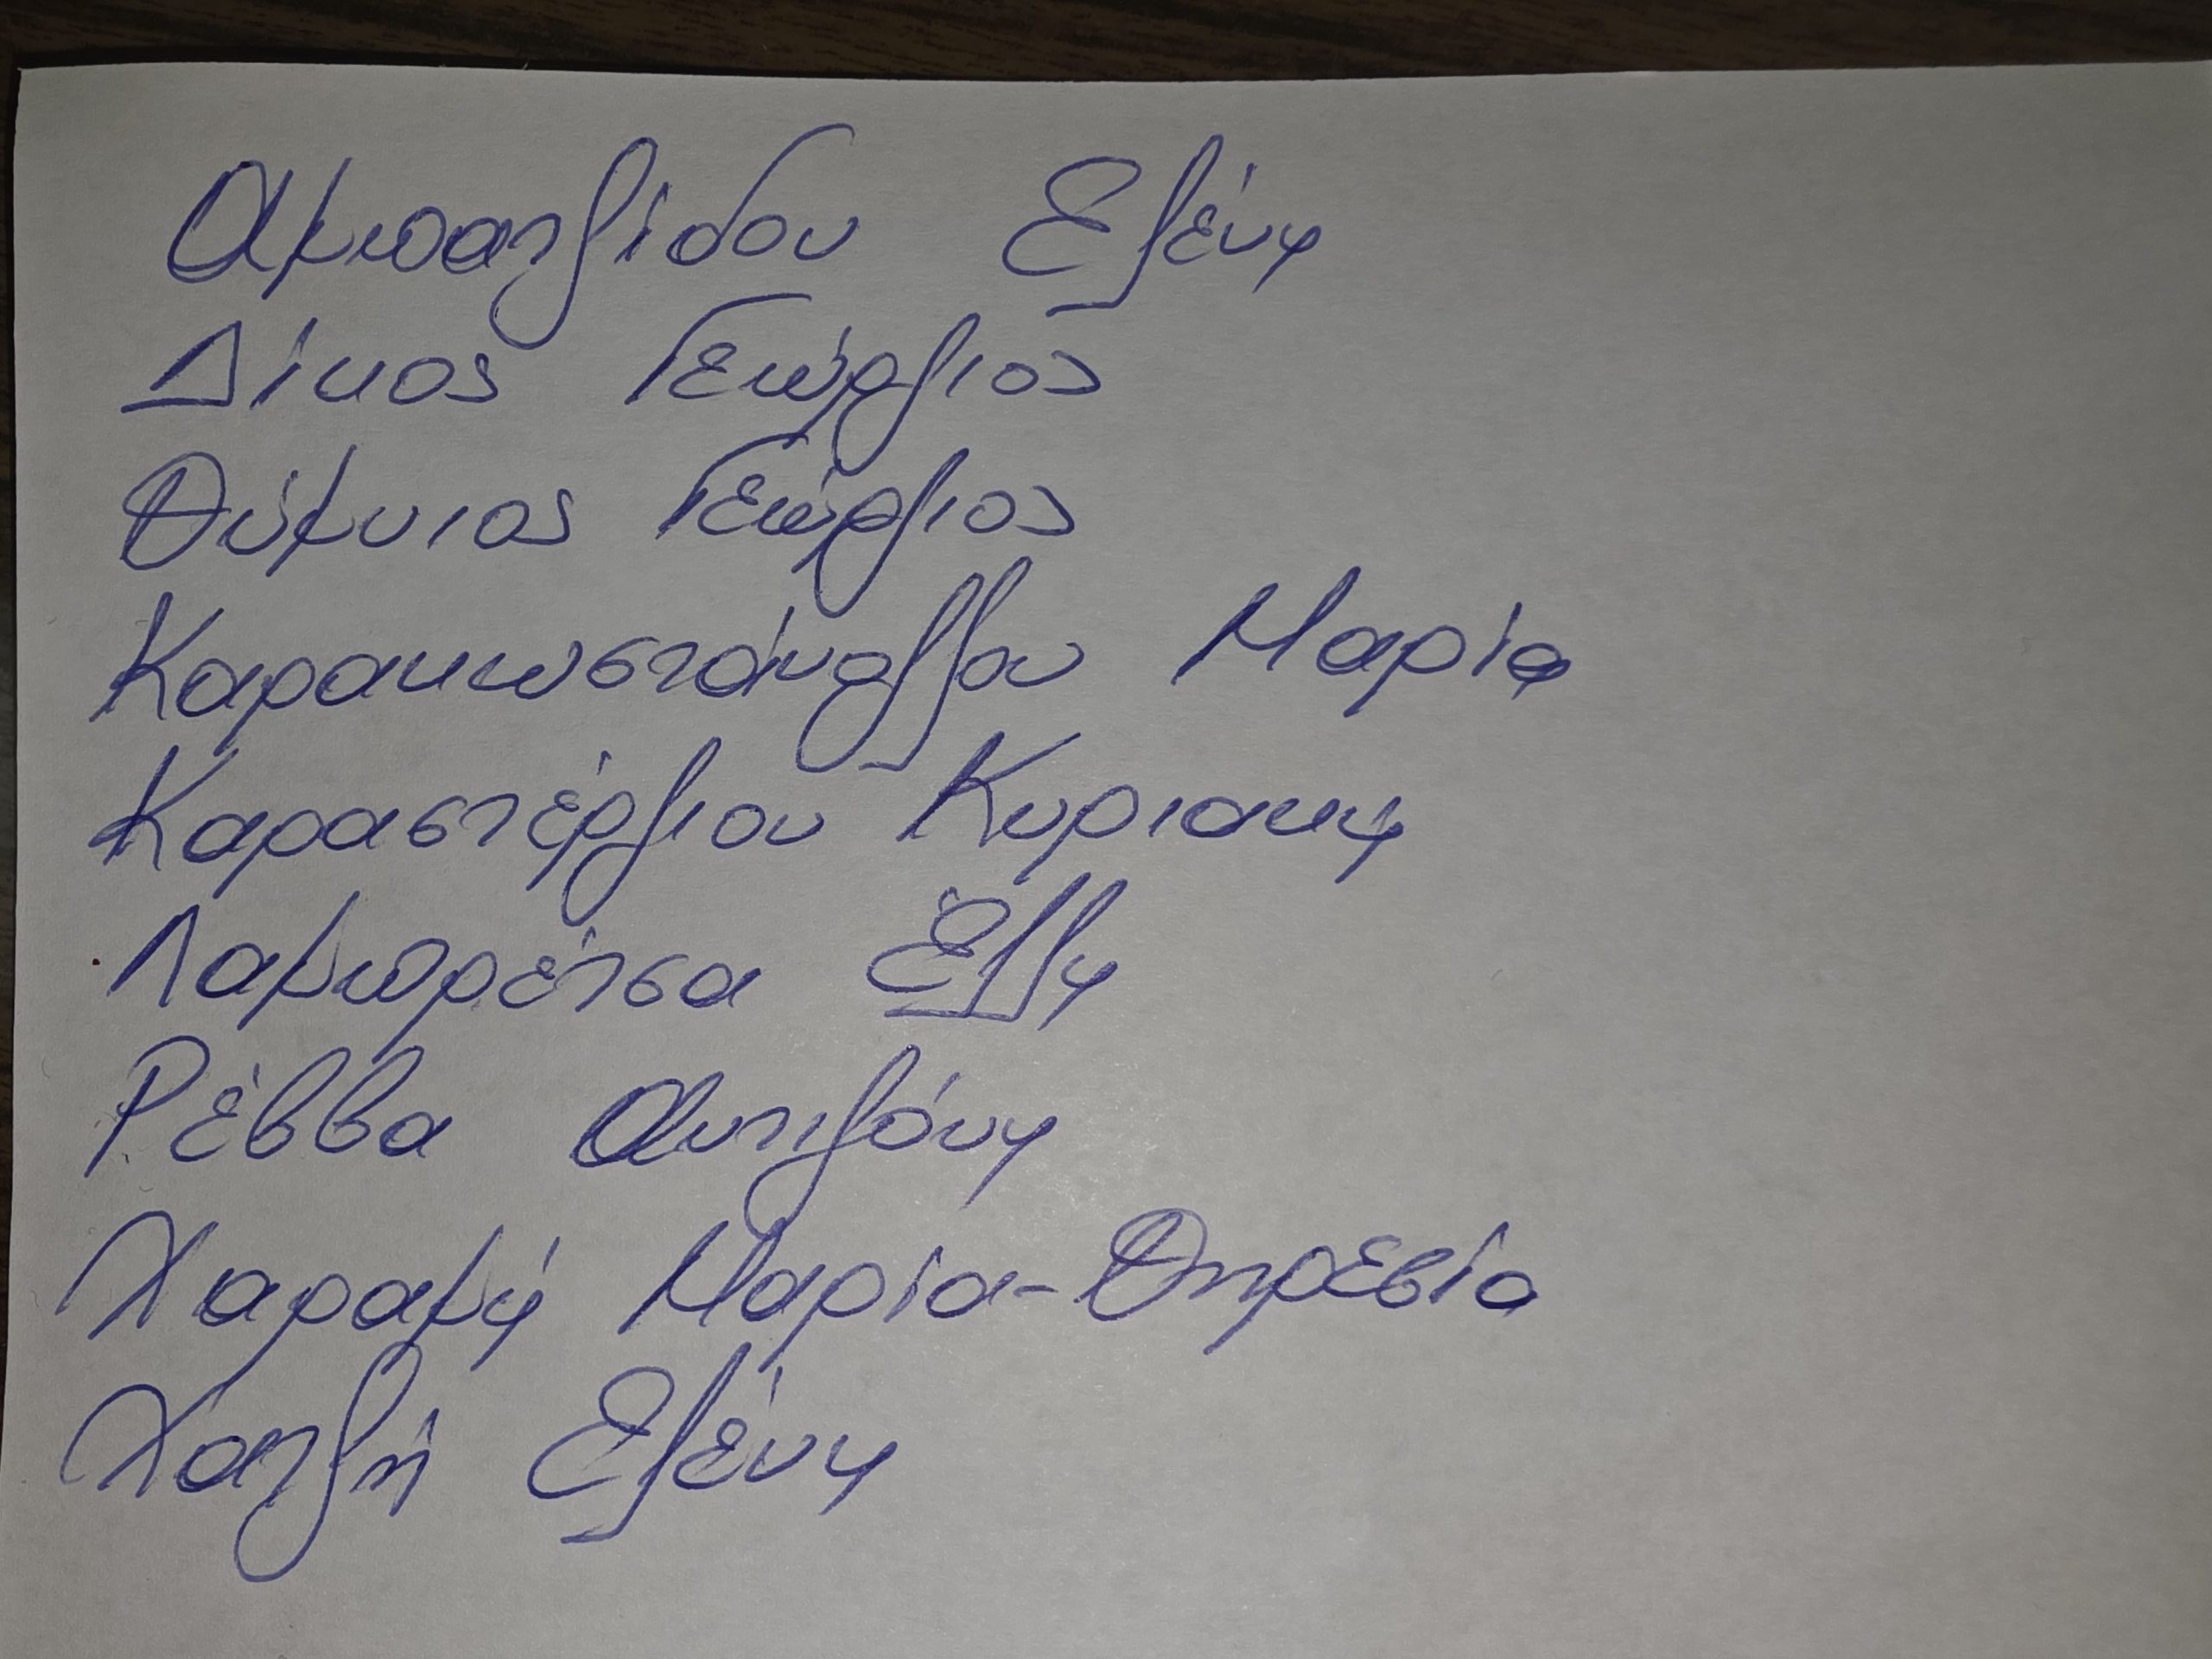 Αμπατζίδου Ελένη
Δίκος Γεώργιος
Θύμνιος Γεώργιος
Καρακωστάνογλου Μαρία
Καραστέργιου Κυριακή
Λαμπρέτσα Έλλη
Ρέββα Αντιγόνη
Χαραμή Μαρία-Θηρεσία
Χατζή Ελένη